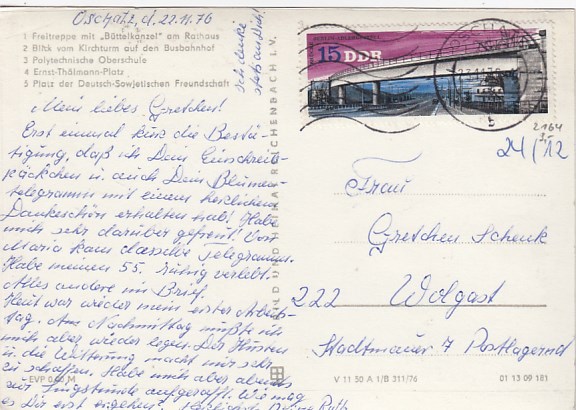 Oschatz, d. 22.11.76
1 Freitreppe mit „Büttelkanzel" am Rathaus
2 Blick vom Kirchturm auf den Busbahnhof
3 Polytechnische Oberschule
4 Ernst-Thälmann-Platz
5 Platz der Deutsch-Sowjetischen Freundschaft
Ich denke
stets an Dich!
Mein liebes Gretchen!
Erst einmal kurz die Bestä-
tigung, daß ich Dein Einschreib-
päckchen u. auch Dein Blumen-
telegramm mit einem herzlichen
Dankeschön erhalten hab! Habe
mich sehr darüber gefreut! Von
Maria kam dasselbe Telegramm.
Habe meinen 55. ruhig verlebt.
Alles andere im Brief.
Heut war wieder mein erster Arbeits-
tag. Am Nachmittag mußte ich
mich aber wieder legen. Der Husten
u. die Witterung macht mir sehr
zu schaffen. Habe mich aber abends
zur Singstunde aufgerafft. Wie mag
es Dir erst ergehen? Ruth
EVP 0,60 M
BILD UND REICHENBACH I. V.
15 DDR
2164
24/12
Frau
Gretchen Schenk
222 Wolgast
Stadtmauer 7 Postlagernd
V 11 50 A 1/B 311/76
01 13 09 181